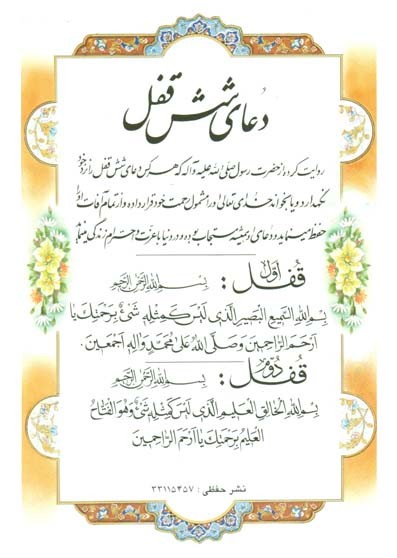 دعای شش قفل
روایت کرده از حضرت رسول صلی الله علیه و اله که هر کس دعای شش قفل را نزد خود
نگهدارد و یا بخواند خدای تعالی او را مشمول رحمت خود قرار داده و از تمام آفات او را
حفظ مینماید و دعای او همیشه مستجاب بوده و در دنیا با عزت و احترام زندگی مینماید
قفل اول: بِسمِ اللهِ الرَّحمنِ الرَّحیمِ
بِسْمِ اللهِ السَّمیعِ الْبَصیرِ الَّذی لَیْسَ کَمِثْلِهِ شَیْءٌ بِرَحْمَتِکَ یا
اَرْحَمَ الرّاحِمینَ وَ صَلَّی اللهُ عَلی مُحَمَّدٍ وَ الِهِ اَجْمَعینَ.
قفل دوم: بِسمِ اللهِ الرَّحمنِ الرَّحیمِ
بِسْمِ اللهِ الْخالِقِ الْعَلیمِ الَّذی لَیْسَ کَمِثْلِهِ شَیْءٌ وَ هُوَ الْفَتّاحُ
الْعَلیمُ بِرَحْمَتِکَ یا اَرْحَمَ الرّاحِمینَ
نشر حفظی : ۳۳۱۱۵۴۵۷